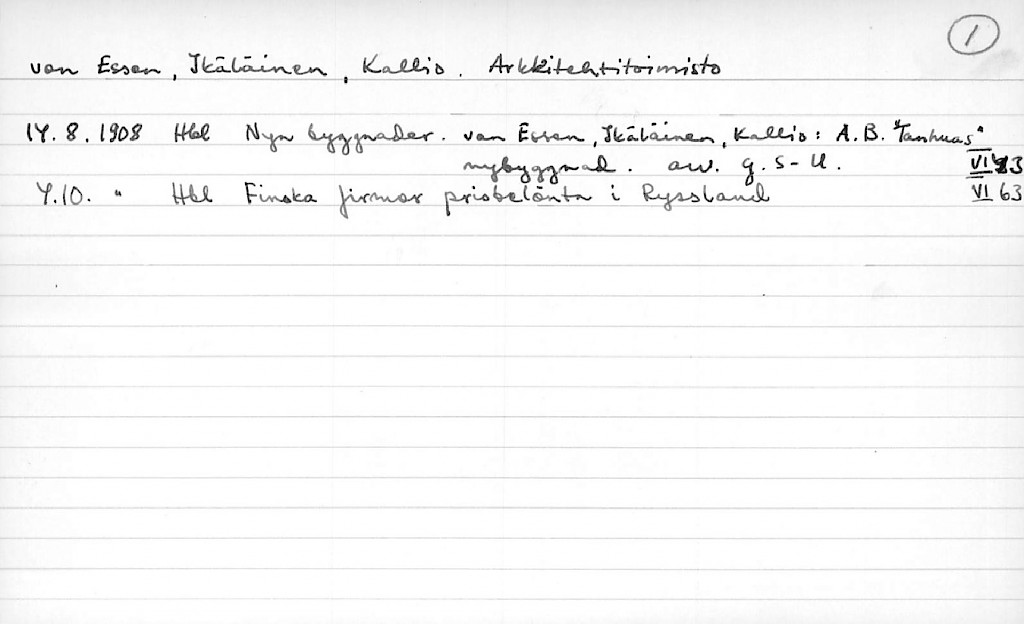 1
von Essen, Ikäläinen, Kallio. Arkkitehtitoimisto
14.8.1908 Hbl Nya byggnader. von Essen, Ikäläinen, Kallio: A.B. "Tanhuas"
nybyggnad. av. G.S-U. VI
4.10. " Hbl Finska firmor prisbelönta i Ryssland VI 63